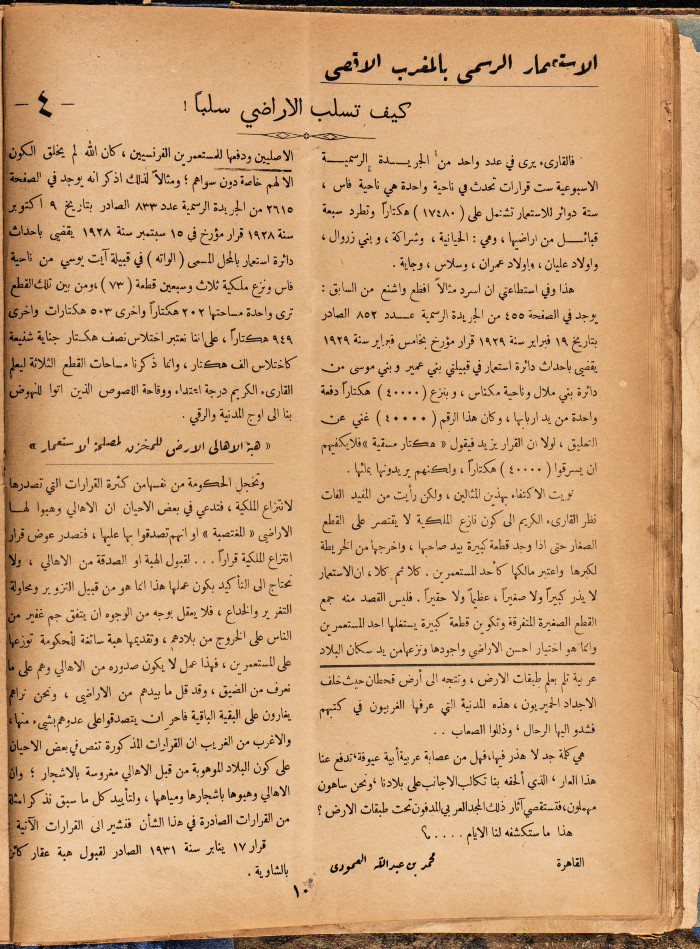 الاستعمار الرسمى بالمغرب الاقصى
كيف تسلب الاراضي سلباً !
– ٤ –
فالقارىء يرى في عدد واحد من الجريدة الرسمية
الاسبوعية ست قرارات تحدث في ناحية واحدة هي ناحية فاس ،
ستة دوائر للاستعمار تشتمل على ( ١٧٤٨٠ ) هكتاراً وتطرد سبعة
قبائل من اراضيها ، وهي : الحيانية ، وشراكة ، وبني زروال ،
واولاد عليان ، واولاد عمران ، وسلاس ، وجاية .
هذا وفي استطاعتي ان اسرد مثالاً افظع واشنع من السابق :
يوجد في الصفحة ٤٥٥ من الجريدة الرسمية عدد ٨٥٢ الصادر
بتاريخ ١٩ فبراير سنة ١٩٢٩ قرار مؤرخ بخامس فبراير سنة ١٩٢٩
يقضي باحداث دائرة استعمار في قبيلتي بني عمير وبني موسى من
دائرة بني ملال وناحية مكناس ، وبنزع ( ٤٠٠٠٠ ) هكتاراً دفعة
واحدة من يد اربابها ، وكان هذا الرقم ( ٤٠٠٠٠ ) غني عن
التعليق ، لولا ان القرار يزيد فيقول « هكتار مسقية » فلايكفيهم
ان يسرقوا ( ٤٠٠٠٠ ) هكتاراً ، ولكنهم يريدونها بمائها .
نويت الاكتفاء بهذين المثالين ، ولكن رأيت من المفيد الفات
نظر القارىء الكريم الى كون نازع الملكية لا يقتصر على القطع
الصغار حتى اذا وجد قطعة كبيرة بيد صاحبها ، واخرجها من الخريطة
لكبرها واعتبر مالكها كأحد المستعمرين . كلا ثم كلا ، ان الاستعمار
لا يذر كبيراً ولا صغيراً ، عظيماً ولا حقيراً . فليس القصد منه جمع
القطع الصغيرة المتفرقة وتكوين قطعة كبيرة يستغلها احد المستعمرين
وانما هو اختيار احسن الاراضي واجودها ونزعها من يد سكان البلاد
عربية تلم بعلم طبقات الارض ، وتتجه الى أرض قحطان حيث خلف
الاجداد الحميريون ، هذه المدنية التي عرفها الغربيون في كتبهم
فشدو اليها الرحال ، وذللوا الصعاب . .
هي كلمة جد لا هذر فيها ، فهل من عصابة عربية أبية عيوفة ، تدفع عنا
هذا العار ، الذي ألحقه بنا تكالب الاجانب على بلادنا ، ونحن ساهون
مهملون ، فتستقصي آثار ذلك المجد العربي المدفون تحت طبقات الارض ؟
هذا ما ستكشفه لنا الايام . . . . ؟
القاهرة محمد بن عبدالله العمودى
الاصليين ودفعها للمستعمرين الفرنسيين ، كان الله لم يخلق الكون
الا لهم خاصة دون سواهم ؛ ومثالاً لذلك اذكر انه يوجد في الصفحة
٢٦١٥ من الجريدة الرسمية عدد ٨٣٣ الصادر بتاريخ ٩ اكتوبر
سنة ١٩٢٨ قرار مؤرخ في ١٥ سبتمبر سنة ١٩٢٨ يقضي باحداث
دائرة استعمار بالمحل المسمى ( الواته ) في قبيلة آيت يوسي من ناحية
فاس ونزع ملكية ثلاث وسبعين قطعة ( ٧٣ ) ، ومن بين تلك القطع
ترى واحدة مساحتها ٢٠٢ هكتاراً واخرى ٥٠٣ هكتارات واخرى
٩٤٩ هكتاراً ، على اننا نعتبر اختلاس نصف هكتار جناية شنيعة
كاختلاس الف هكتار ، وانما ذكرنا مساحات القطع الثلاثة ليعلم
القارىء الكريم درجة اعتداء ووقاحة اللصوص الذين اتوا للنهوض
بنا الى اوج المدنية والرقي .
« هبة الاهالى الارض للمخزن لمصلحة الاستعمار »
وتخجل الحكومة من نفسها من كثرة القرارات التي تصدرها
لانتزاع الملكية ، فتدعي في بعض الاحيان ان الاهالي وهبوا لها
الاراضي « المغتصبة » او انهم تصدقوا بها عليها ، فتصدر عوض قرار
انتزاع الملكية قراراً . . . لقبول الهبة او الصدقة من الاهالي ، ولا
نحتاج الى التأكيد بكون عملها هذا انما هو من قبيل التزوير ومحاولة
التغرير والخداع ، فلا يعقل بوجه من الوجوه ان يتفق جم غفير من
الناس على الخروج من بلادهم ، وتقديمها هبة سائغة للحكومة توزعها
على المستعمرين ، فهذا عمل لا يكون صدوره من الاهالي وهم على ما
نعرف من الضيق ، وقد قل ما بيدهم من الاراضي ، ونحن نراهم
يغارون على البقية الباقية فاحر ان يتصدقوا على عدوهم بشيء منها ،
والاغرب من الغريب ان القرارات المذكورة تنص في بعض الاحيان
على كون البلاد الموهوبة من قبل الاهالي مغروسة بالاشجار ؛ وان
الاهالي وهبوها باشجارها ومياهها ، ولتأييد كل ما سبق نذكر امثلة
من القرارات الصادرة في هذا الشأن فنشير الى القرارات الآتية :
قرار ١٧ يناير سنة ١٩٣١ الصادر لقبول هبة عقار كائن
بالشاوية .
١٠